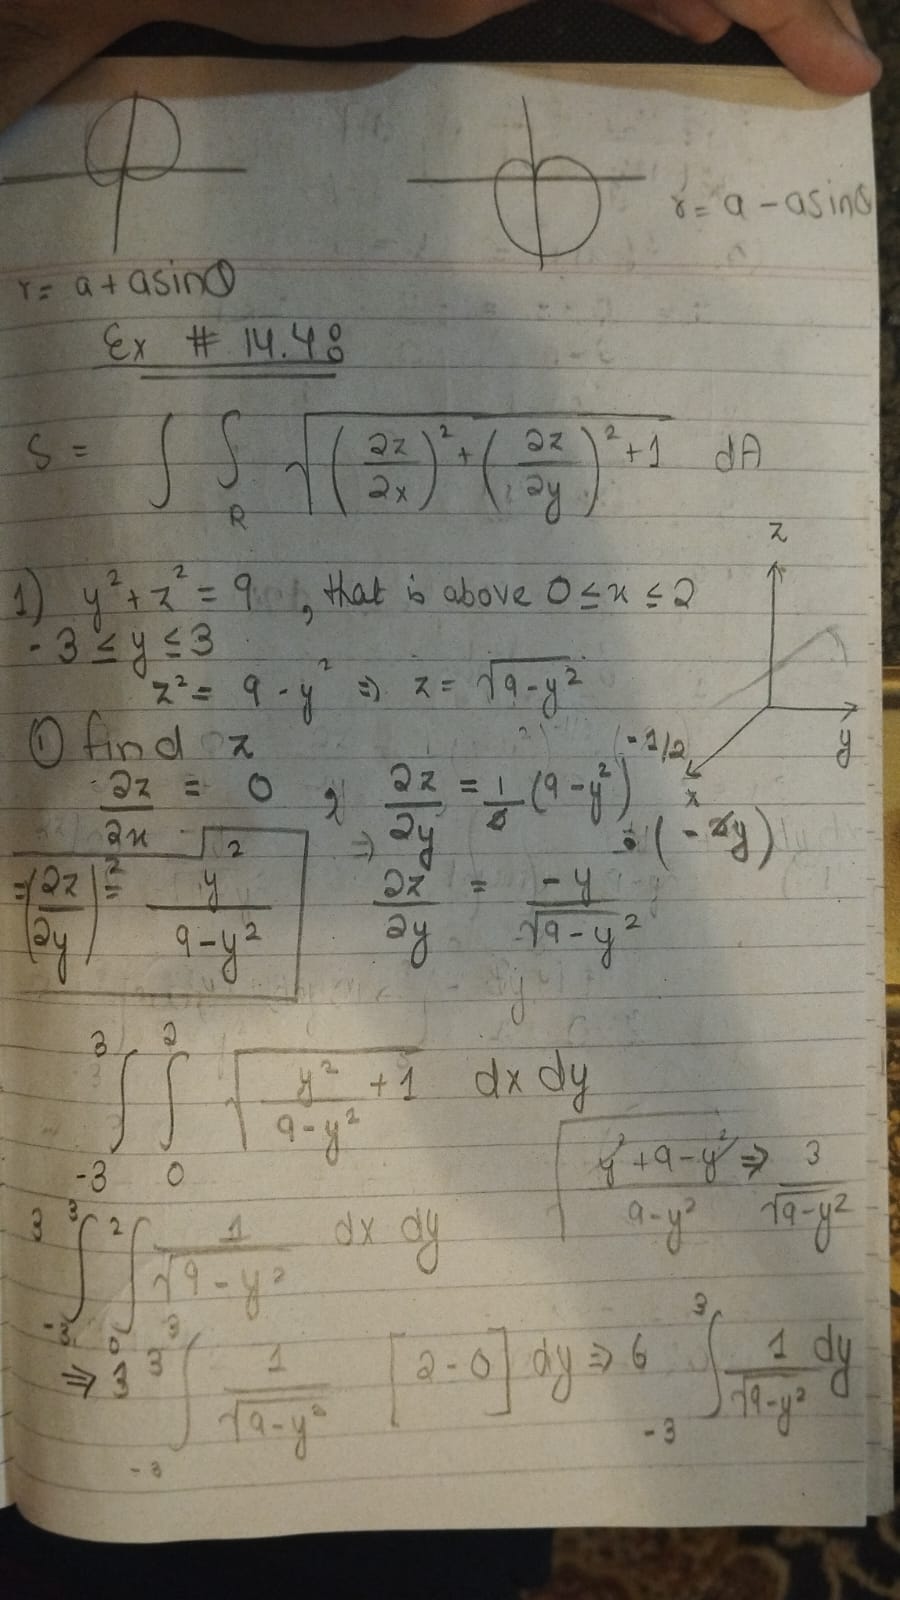 r = a - a sinθ
r = a + a sinθ
Ex # 14.4:
S = ∫ ∫_R √((∂z/∂x)² + (∂z/∂y)² + 1) dA
z
1) y² + z² = 9 , that is above 0 ≤ x ≤ 2
-3 ≤ y ≤ 3
z² = 9 - y² ⇒ z = √(9-y²)
① find z
y
x
∂z/∂x = 0 , ∂z/∂y = 1/2 (9-y²)^(-1/2) · (-2y)
⇒ (∂z/∂y)² = y²/(9-y²)
⇒ ∂z/∂y = -y/√(9-y²)
∫_{-3}^{3} ∫_0^2 √(y²/(9-y²) + 1) dx dy
√((y²+9-y²)/(9-y²)) ⇒ 3/√(9-y²)
3 ∫_{-3}^{3} ∫_0^2 1/√(9-y²) dx dy
⇒ 3 ∫_{-3}^{3} 1/√(9-y²) [2-0] dy ⇒ 6 ∫_{-3}^{3} 1/√(9-y²) dy